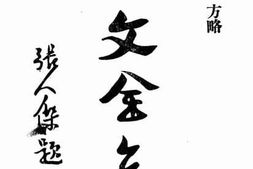 方略
文金
張人傑題